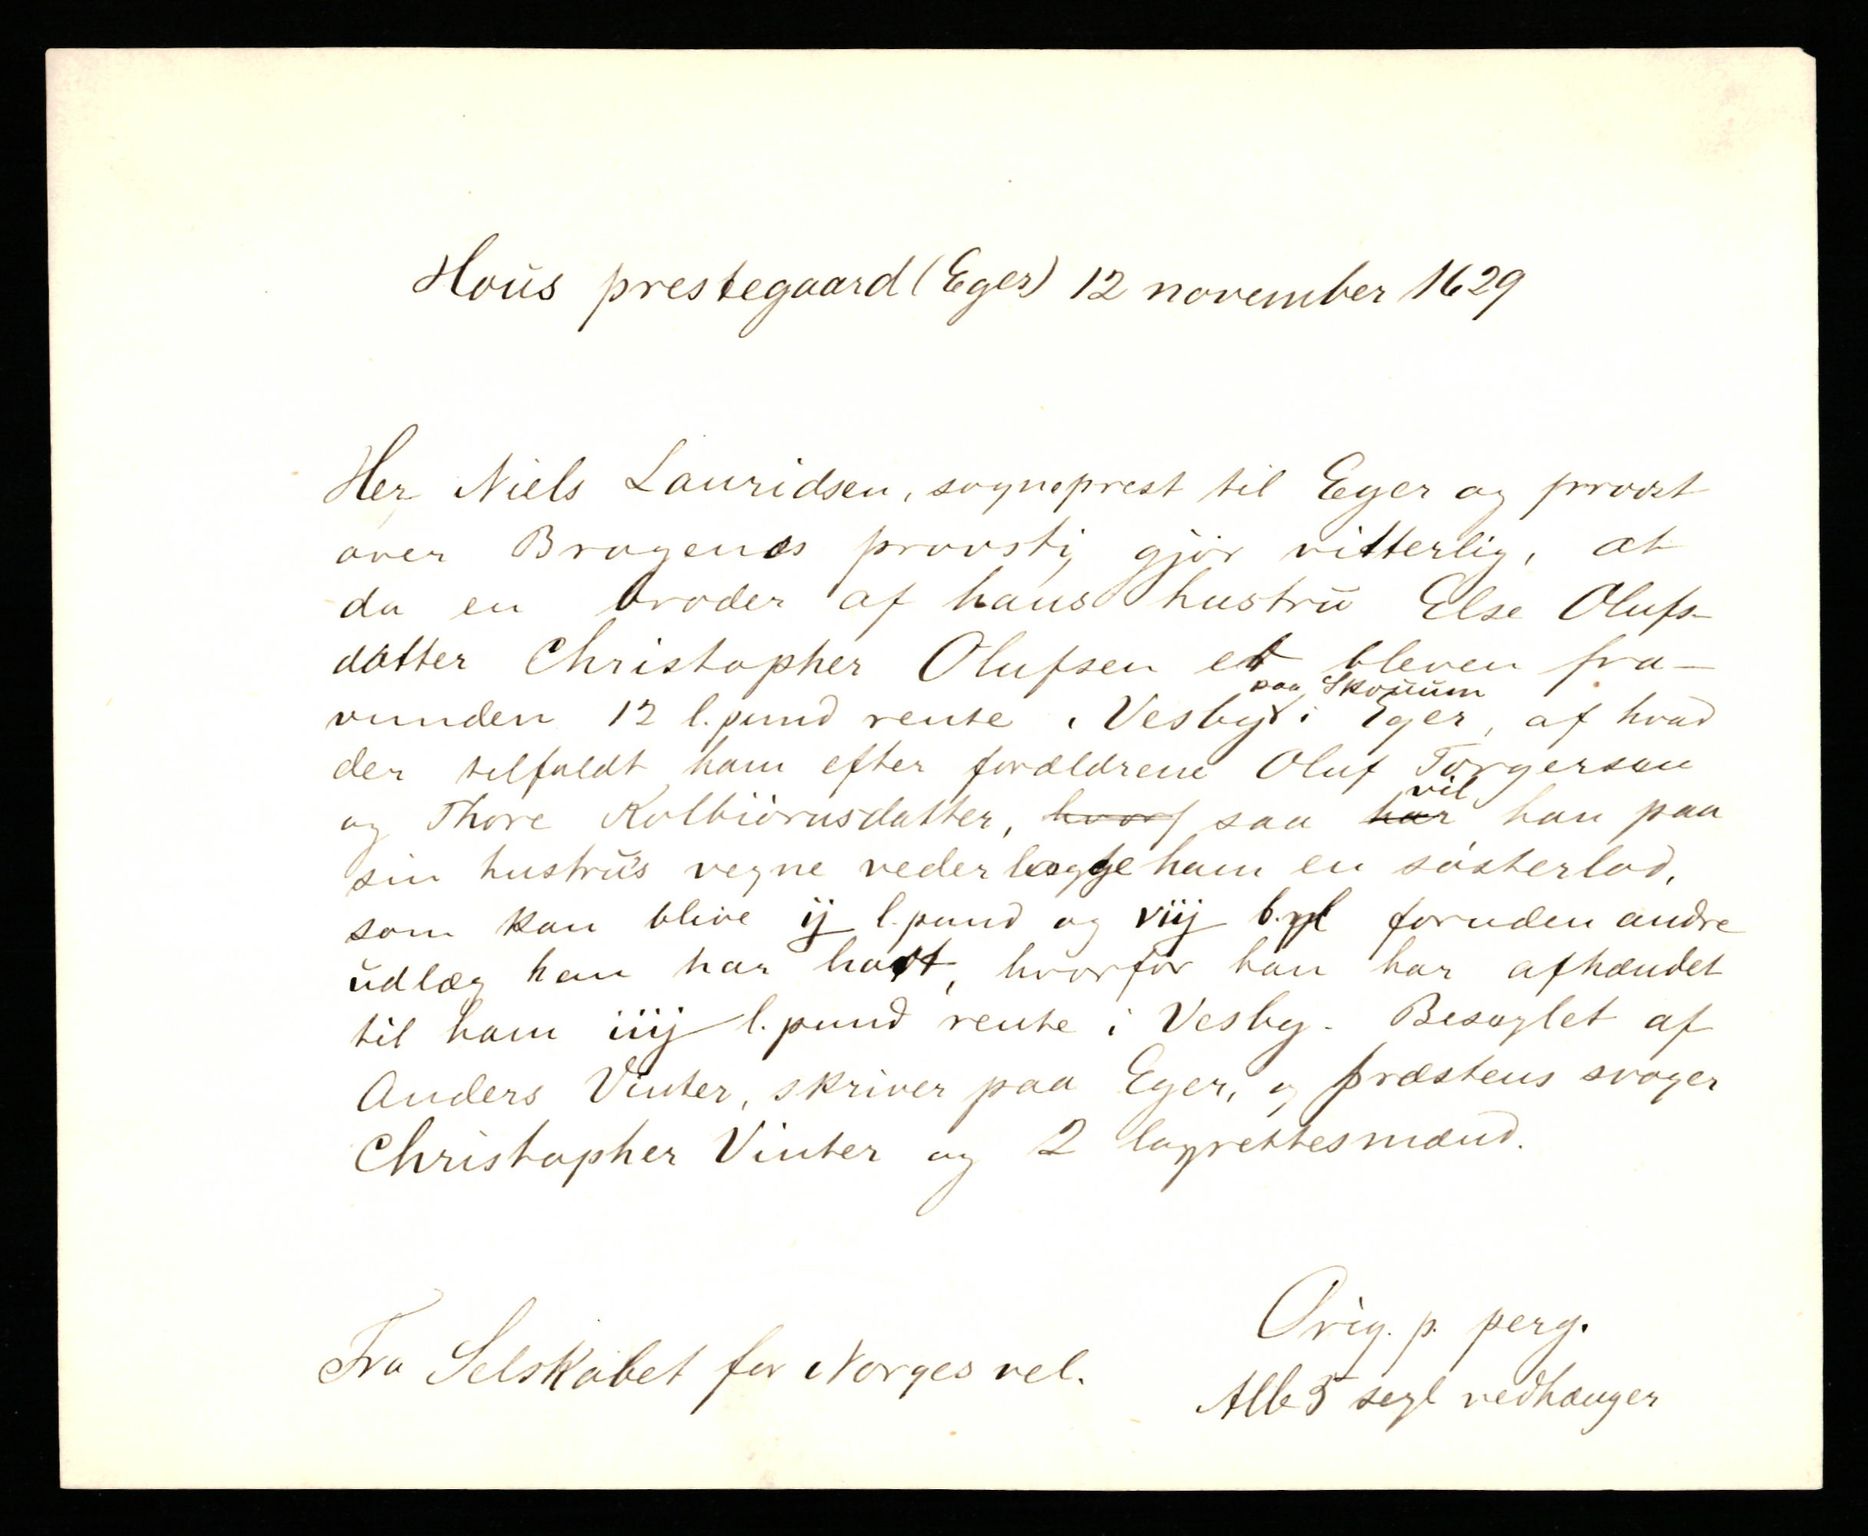 Hoŭs prestegaard (Eger) 12 november 1629
Her Niels Lauridsen, sogneprest til Eger og provst
over Bragenæs provsti gjör vitterlig, at
da en broder af hans hustrŭ Else Olufs-
datter Christopher Olufsen er bleven fra-
vunden 12 l.pund rente i Vesby paa Skoŭŭm i Eger, af hvad
der tilfaldt ham efter forældrene Oluf Torgersen
og Thore Kolbiörnsdatter, hvorf saa har vil han paa
sin hustrŭ's vegne vederlægge ham en sösterlod,
som kan blive ij l.pund og viij b.pl foruden andre
ŭdlæg han har havt, hvorfor han har afhændet
til ham iiij l.pund rente i Vesby. Beseglet af
Anders Vinter, skriver paa Eger, og præstens svoger
Christopher Vinter og 2 lagrettesmænd.
Fra Selskabet for Norges vel.
Orig. p. perg.
Alle 5 segl vedhænger